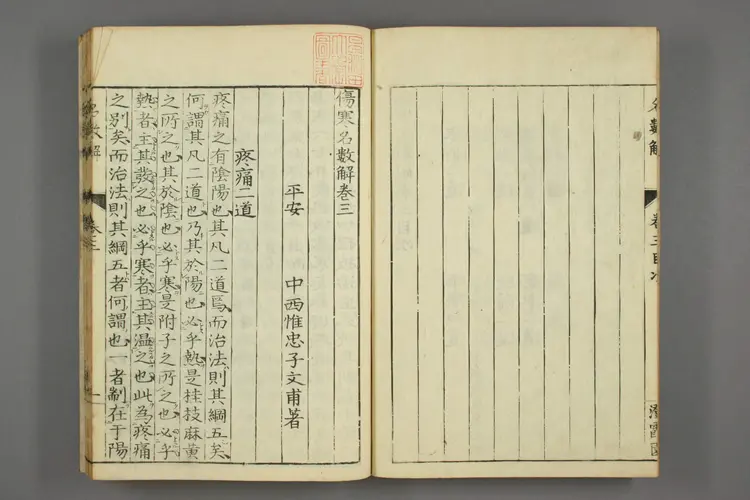 名數解
卷三目次
傷寒名數解卷三
平安　中西惟忠子文甫著
疼痛二道
疼痛之有陰陽也其凡二道焉而治法則其綱五矣
何謂其凡二道也乃其於陽也必乎熱是桂枝麻黄
之所之也其於陰也必乎寒是附子之所之也必乎
熱者主其發之也必乎寒者主其温之也此為疼痛
之別矣而治法則其綱五者何謂也一者剬在于陽
名數解
卷三
一